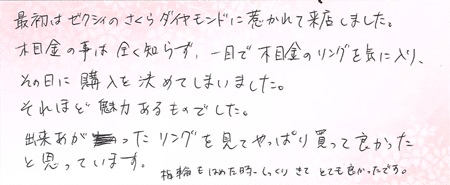 最初はゼクシィのさくらダイヤモンドに惹かれて来店しました。
木目金の事は全く知らず、一目で木目金のリングを気に入り、
その日に購入を決めてしまいました。
それほど魅力あるものでした。
出来あがったリングを見てやっぱり買って良かった
と思っています。
指輪もはめた時しっくりきてとても良かったです。